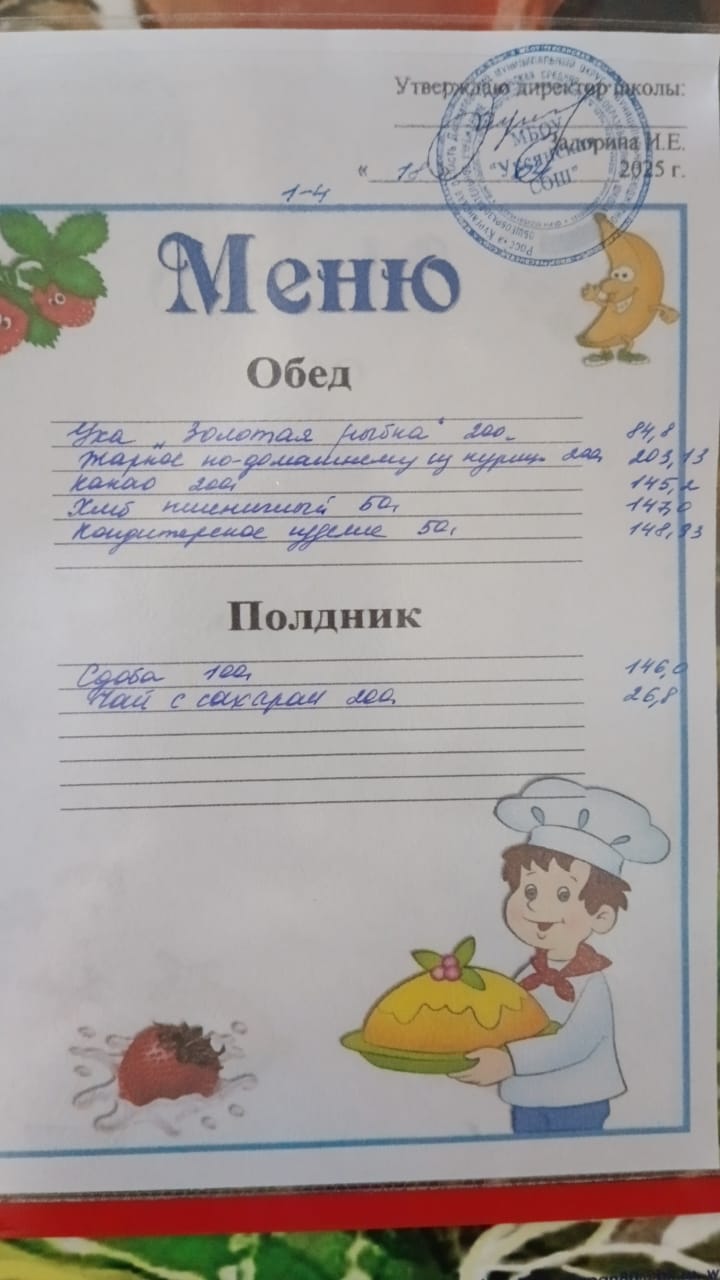 Утверждаю директор школы:
Задорина И.Е.
« 18 2025 г.
МБОУ
"Уксянская
СОШ"
1-4
Меню
Обед
Уха "Золотая рыбка" 200г 84,8
Жаркое по-домашнему из курицы 200г 203,13
Какао 200г 145,2
Хлеб пшеничный 50г 147,0
Кондитерское изделие 50г 148,93
Полдник
Сдоба 100г 146,0
Чай с сахаром 200г 26,8